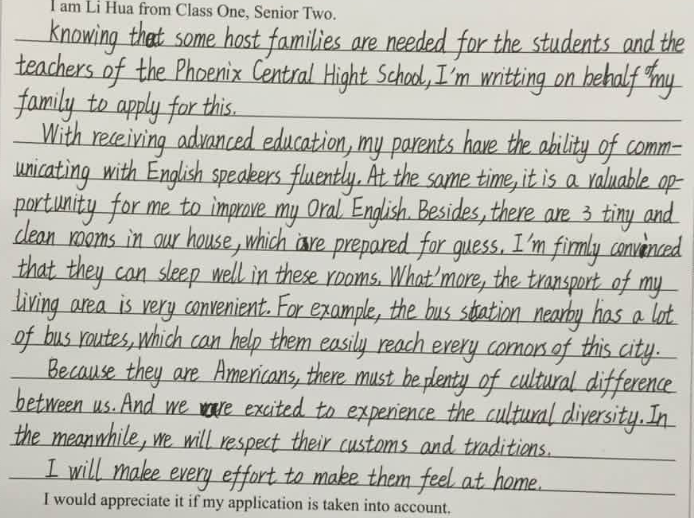 I am Li Hua from Class One, Senior Two.
Knowing that some host families are needed for the students and the
teachers of the Phoenix Central Hight School, I'm writting on behalf of my
family to apply for this.
With receiving advanced education, my parents have the ability of comm-
unicating with English speakers fluently. At the same time, it is a valuable op-
portunity for me to improve my Oral English. Besides, there are 3 tiny and
clean rooms in our house, which are prepared for guess. I'm firmly convinced
that they can sleep well in these rooms. What'more, the transport of my
living area is very convenient. For example, the bus station nearby has a lot
of bus routes, which can help them easily reach every cornors of this city.
Because they are Americans, there must be plenty of cultural difference
between us. And we are excited to experience the cultural diversity. In
the meanwhile, we will respect their customs and traditions.
I will make every effort to make them feel at home.
I would appreciate it if my application is taken into account.